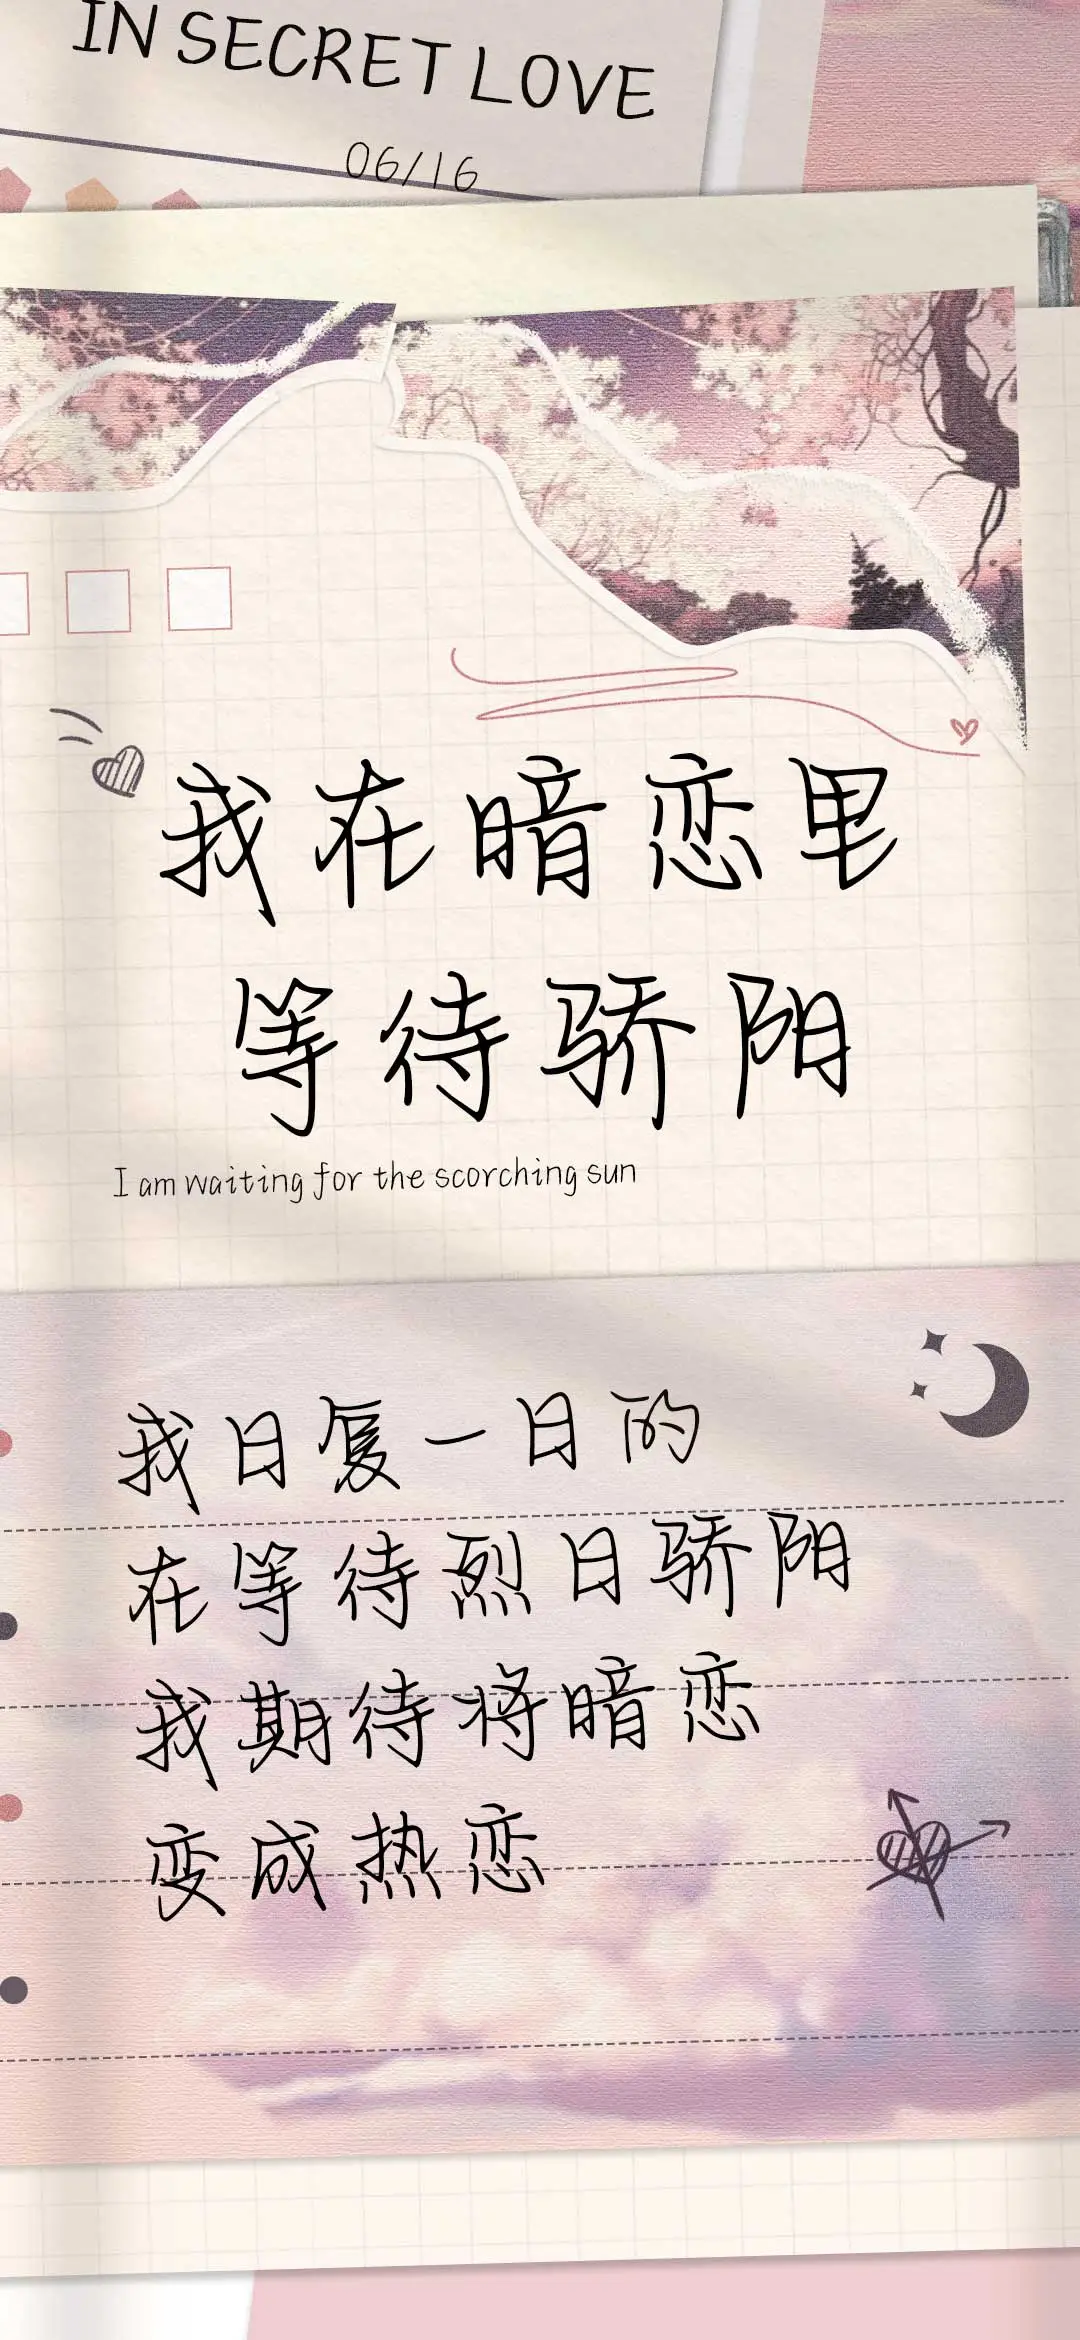 IN SECRET LOVE
06/16
我在暗恋里
等待骄阳
I am waiting for the scorching sun
我日复一日的
在等待烈日骄阳
我期待将暗恋
变成热恋